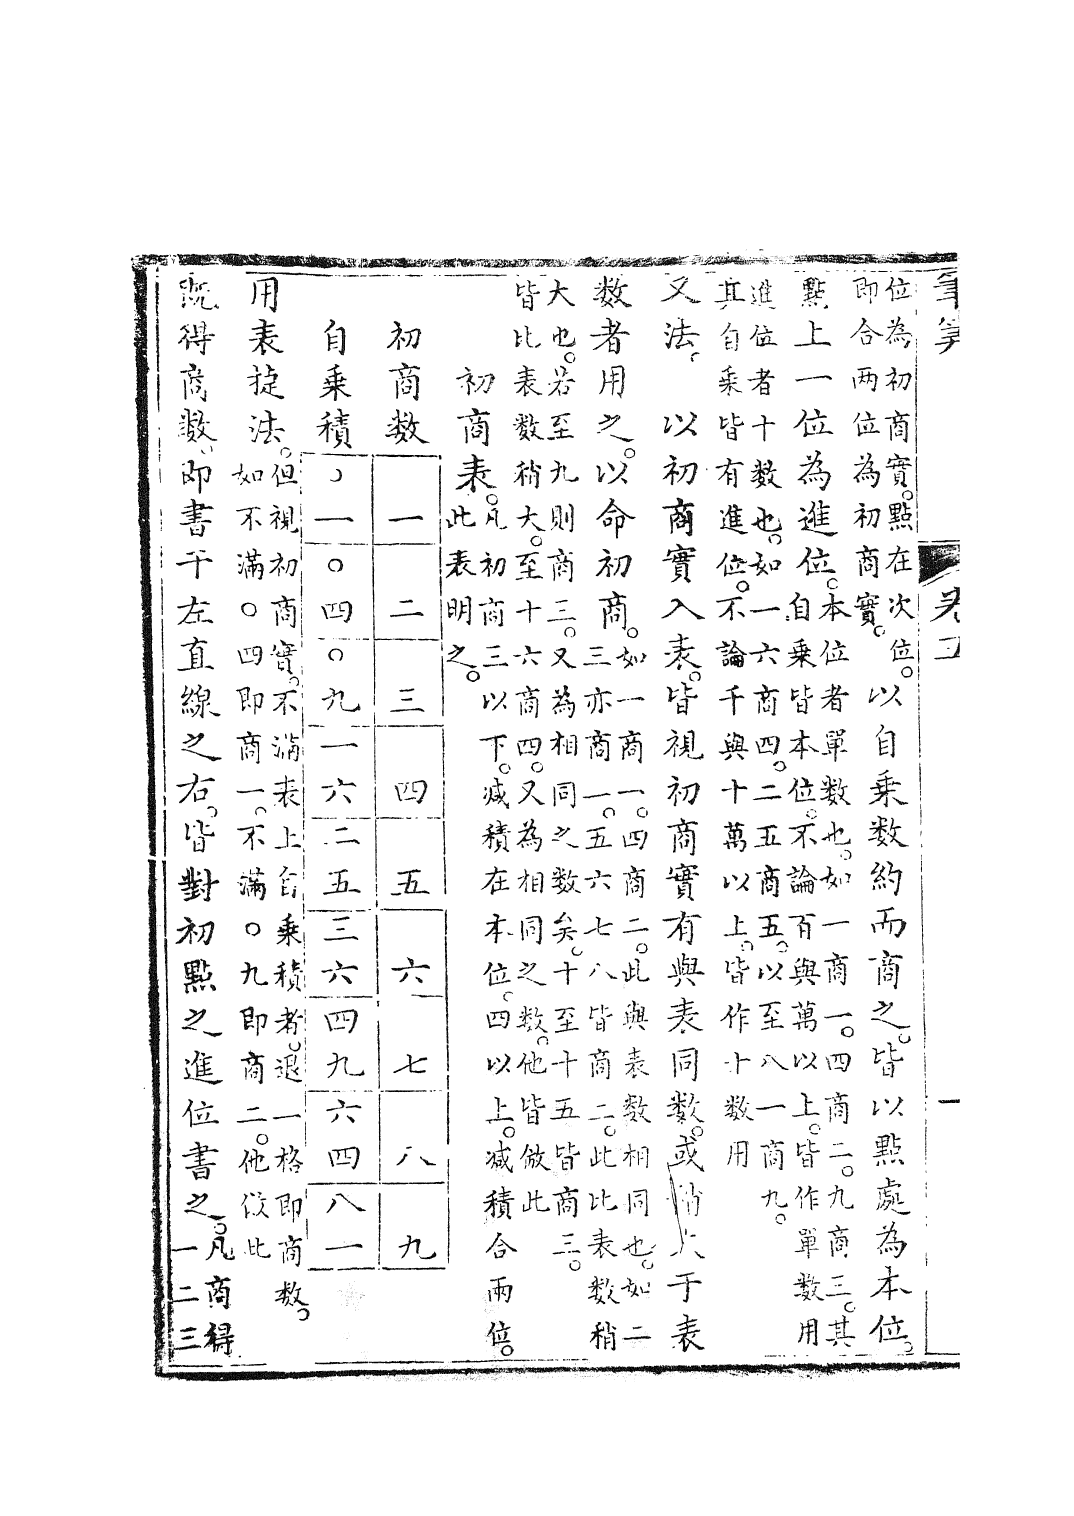 筆算
卷
一
位為初商實。點在次位。
即合兩位為初商實。
以自乘數約而商之。皆以點處為本位。
點上一位為進位。
本位者單數也。如一商一。四商二。九商三。其
自乘皆本位。不論百與萬以上。皆作單數用
進位者十數也。如一六商四。二五商五。以至八一商九。
其自乘皆有進位。不論千與十萬以上。皆作十數用
又法。以初商實入表。皆視初商實有與表同數。或稍大于表
數者用之。以命初商。
如一商一。四商二。此與表數相同也。如二
三亦商一。五六七八皆商二。此比表數稍
大也。若至九則商三。又為相同之數矣。十至十五皆商三。
皆比表數稍大。至十六商四。又為相同之數。他皆倣此
初商表。
凡初商三以下。減積在本位。四以上。減積合兩位。
此表明之。
初商數 一 二 三 四 五 六 七 八 九
自乘積 〇一 〇四 〇九 一六 二五 三六 四九 六四 八一
用表捷法。
但視初商實。不滿表上自乘積者。退一格即商數。
如不滿〇四即商一。不滿〇九即商二。他倣此
既得商數。即書于左直線之右。皆對初點之進位書之。
凡商得
一二三